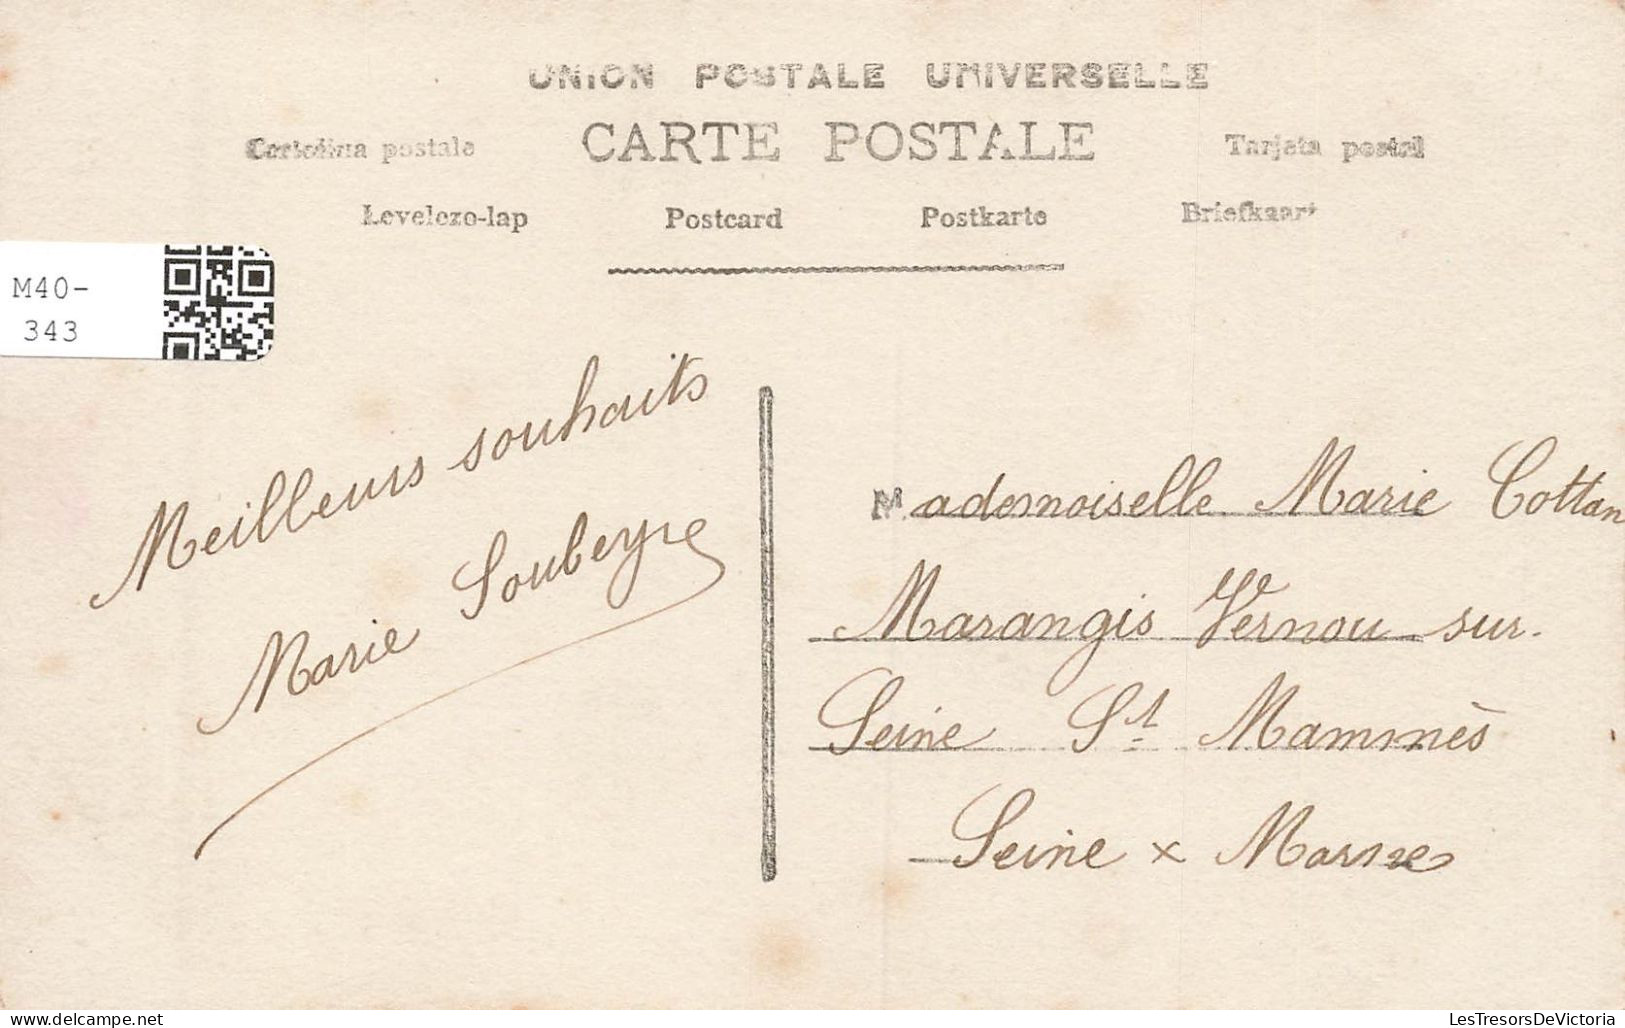 UNION POSTALE UNIVERSELLE
CARTE POSTALE
Cartolina postale
Tarjeta postal
Levelezo-lap
Postcard
Postkarte
Briefkaart
M40-
343
Meilleurs souhaits
Marie Soubeyre
Mademoiselle Marie Cottan
Marangis Vernou sur
Seine St Mammès
Seine x Marne
LesTresorsDeVictoria
delcampe.net